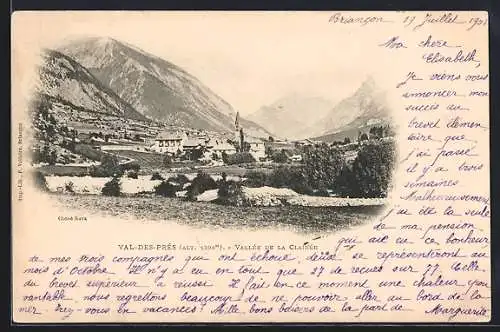 Briançon 19 Juillet 1901
Ma chere
Elisabeth,
Je viens vous
annoncer mon
succès au
brevet élémen
taire que
j'ai passé
il y a trois
semaines
Malheureusement
j'ai été la seule
de ma pension
qui ai eu ce bonheur
Imp.-Lib. P. Vollaire, Briançon
Cliché
VAL-DES-PRÉS (ALT. 1300m). - VALLÉE DE LA CLAIRÉE
de mes trois compagnes qui ont échoué, deux se représenteront au
mois d'Octobre Il n'y a eu en tout que 27 de recues sur 77. Celle
du brevet supérieur a réussi. Il fait en ce moment une chaleur épou
vantable nous regrettons beaucoup de ne pouvoir aller au bord de la
mer. Irez-vous en vacances? Mille bons baisers de la part de Marguerite